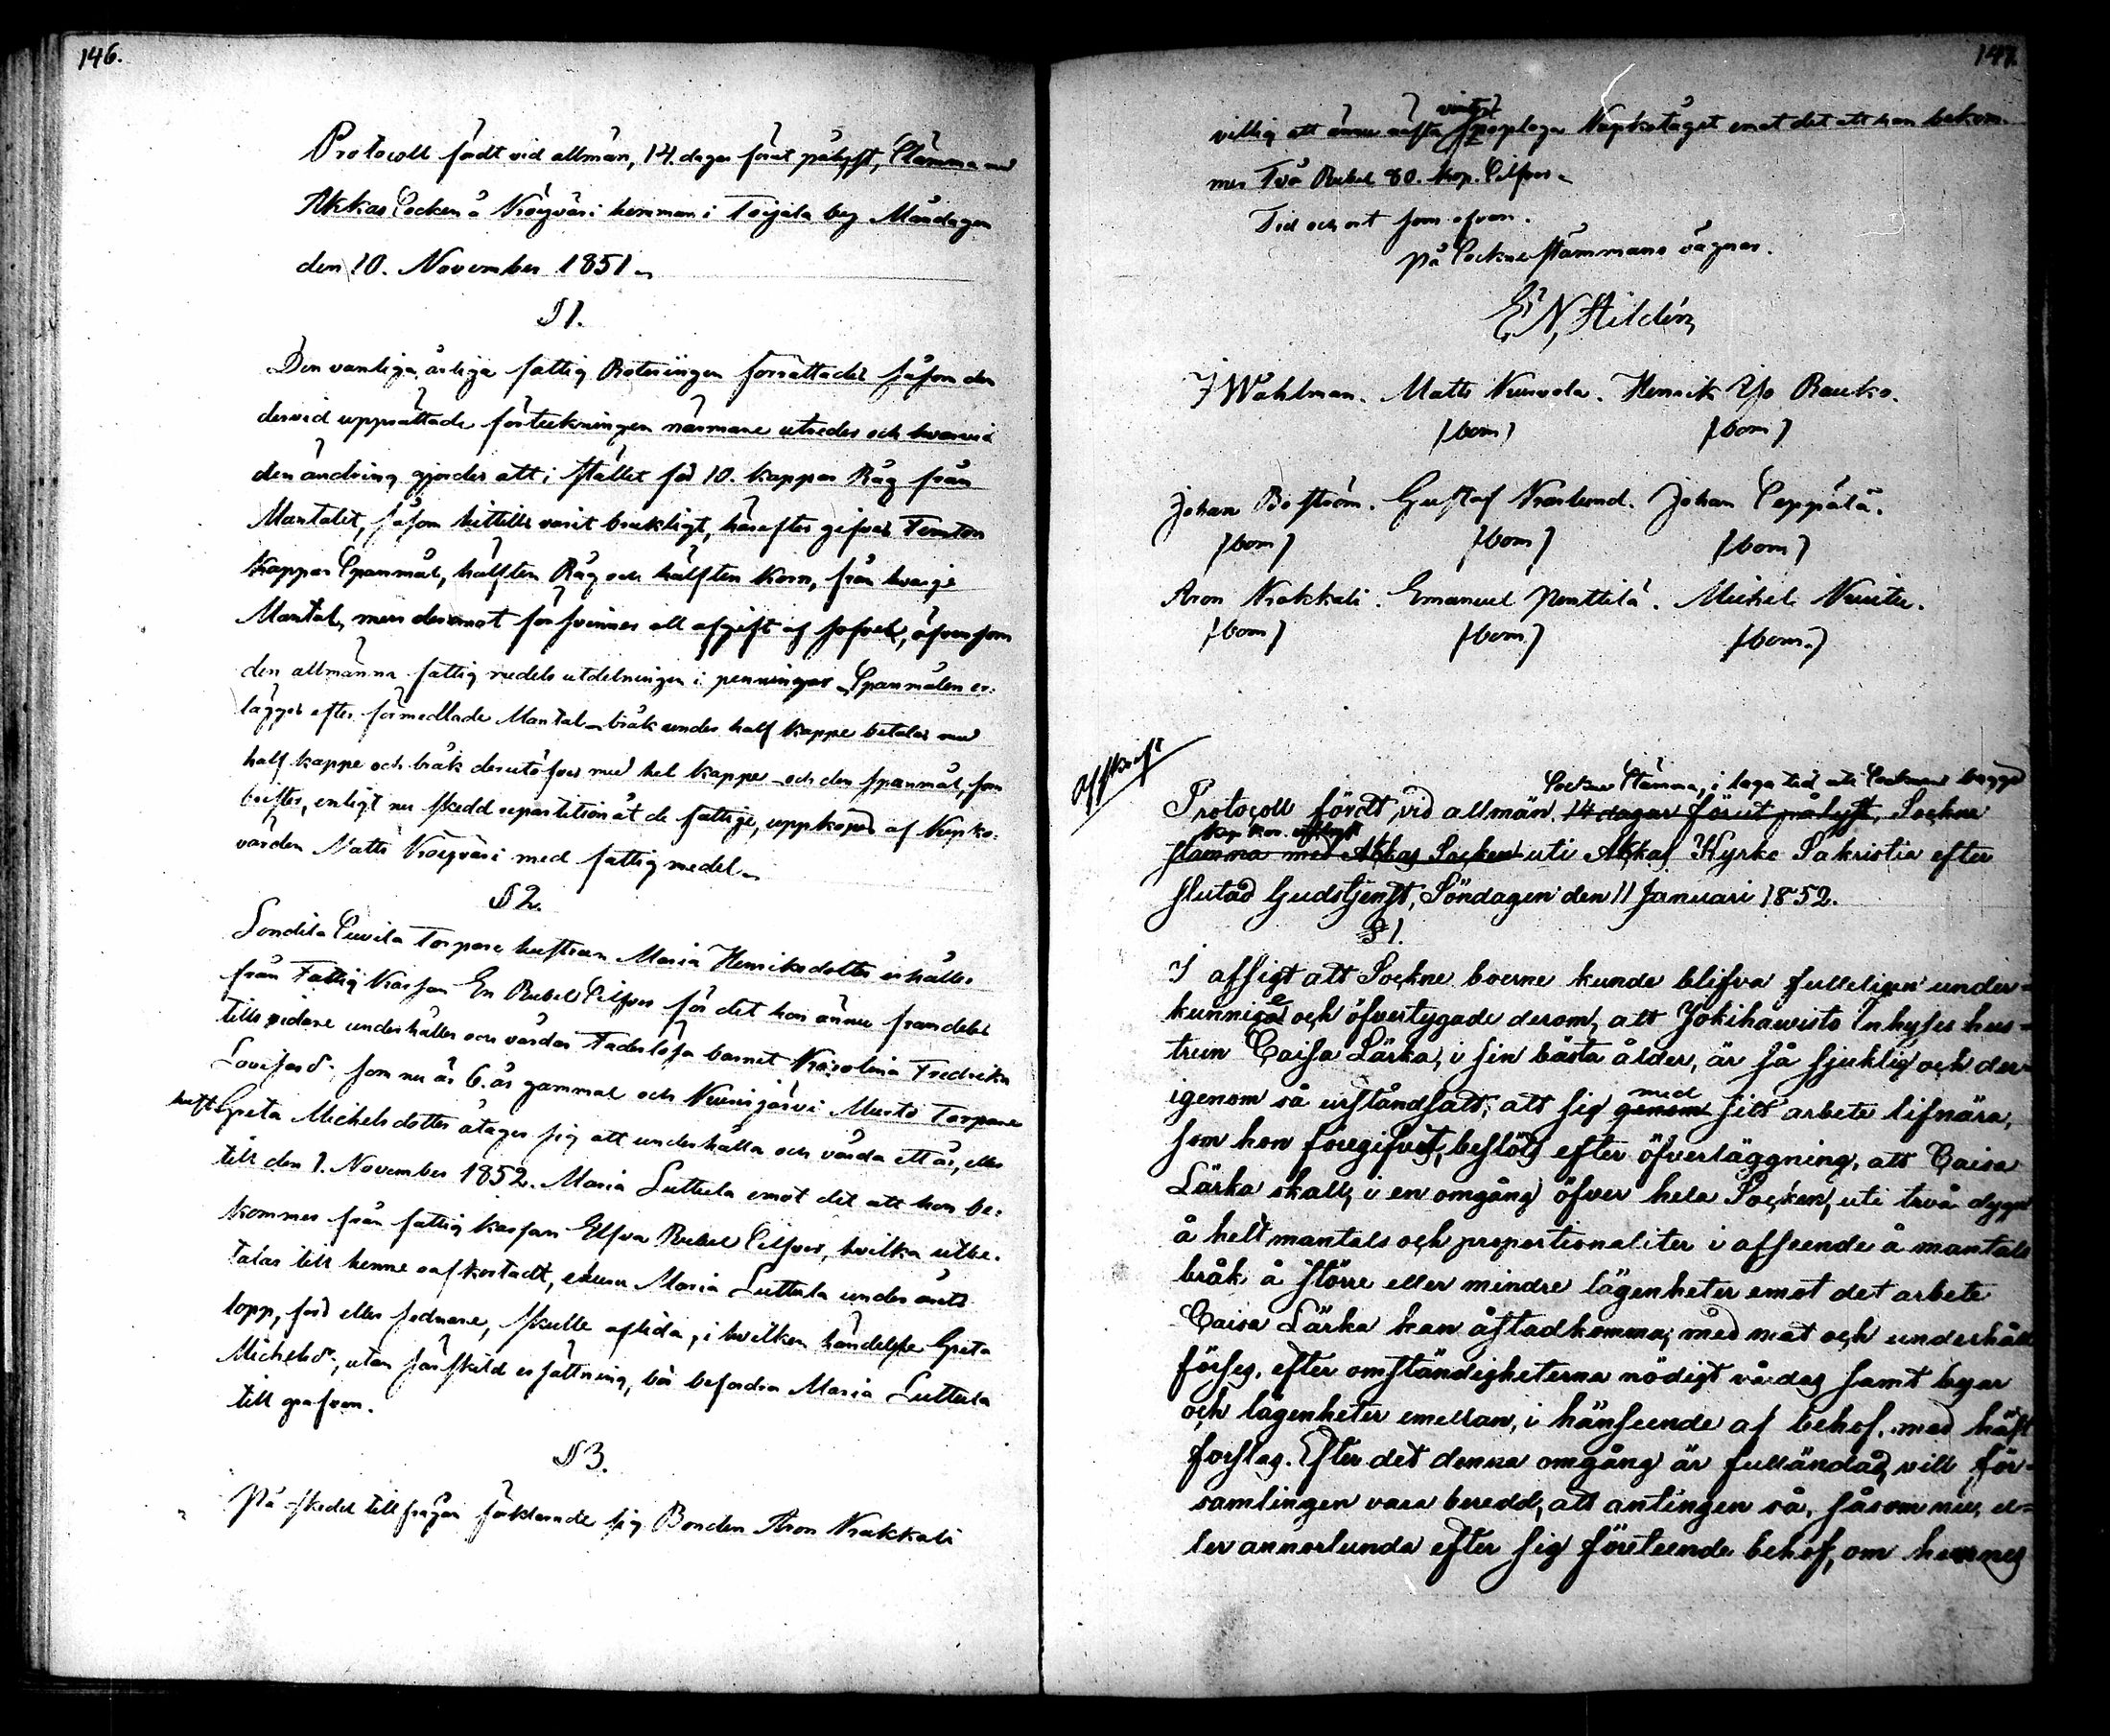 146.
Protocoll fördt vid allmän, 14. dagar förut pålyst, Stämma med
Akkas Socken å Krögväri hemman i Toijala by Måndagen
den 10. November 1851.
§ 1.
Den vanliga årliga fattig Roteringen förrättades såsom den
dervid upprättade förteckningen närmare utreder och hvarvid
den ändring gjordes att i stället för 10. kappar Råg från
Mantalet, såsom hittills varit brukligt, härefter gifves Femton
kappar Spanmål, hälften Råg och hälften Korn, från hvarje
Mantal, men deremot försvinner all afgift af sofvel, äfvensom
den allmänna fattig medels utdelningen i penningar. Spanmålen er-
lägges efter förmedlade Mantal bråk under half kappe betalas med
half kappe och bråk derutöfver med hel kappe och den spanmål, som
brister, enligt nu skedd repartition åt de fattige, uppköpes af Kyrko-
värden Matts Krögväri med fattig medel.
§ 2.
Sondila Puvila Torpare hustrun Maria Henriksdotter erhåller
från Fattig Kassan En Rubel Silfver för det hon ännu framdeles
tills vidare underhåller och vårdar Faderlösa barnet Karolina Fredrika
Lovisasd:, som nu är 6. år gammal och Kurisjärvi Musto Torpare
hust. Greta Michelsdotter åtager sig att underhålla och vårda ett år, eller
till den 1. November 1852. Maria Luttula emot det att hon be-
kommer från fattig kassan Elfva Rubel Silfver, hvilka utbe-
talas till henne oafkortadt, ehuru Maria Luttula under årets
lopp, förr eller sednare, skulle aflida, i hvilken händelse Greta
Michelsd:, utan särskild ersättning, bör befordra Maria Luttula
till grafven.
§ 3.
På skedd tillfrågan förklarade sig Bonden Aron Krakkali
147.
vintern
villig att ännu nästa snöploga Kyrkotåget emot det att han bekom-
mer Två Rubel 80. Kop. Silfver.
Tid och ort som ofvan.
På Sockne stämmans vägnar.
E N Hildén
J Wahlman. Matts Kurvola. Henrik Yso Rauko.
(bom) (bom)
Johan Boström. Gustaf Krarlund. Johan Seppälä.
(bom) (bom) (bom)
Aron Krakkali. Emanuel Penttilä. Michel Kurittu.
(bom) (bom) (bom.)
Afskrift
Sockne Stämma, i laga tid uti Socknens bägge
Protocoll fördt, vid allmän 14 dagar förut pålyst, Sockne
Kyrkor
stämma med Akkas Socken uti Akkas Kyrko Sakristia efter
slutad Gudstjenst, Söndagen den 11 Januari 1852.
§ 1.
I afsigt att Sockne boerne kunde blifva fulleligen under-
kunnige och öfvertygade derom, att Jokihawisto Inhyses hus-
trun Caisa Lärka, i sin bästa ålder, är så sjuklig och der-
igenom så urståndsatt, att sig genom med sitt arbete lifnära,
som hon föregifvit, beslöts efter öfverläggning, att Caisa
Lärka skall, i en omgång öfver hela Socken, uti tvä dygn
å helt mantals och proportionaliter i afseende å mantals
bråk å större eller mindre lägenheter emot det arbete
Caisa Lärka kan åstadkomma, med mat och underhåll
förses, efter omständigheterna nödigt vårdas samt byar
och lägenheter emellan, i hänseende af behof, med häst
forslas. Efter det denna omgång är fulländad, vill för-
samlingen vara beredd, att antingen så, såsom nu, el-
ler annorlunda efter sig företeende behof, om hennes